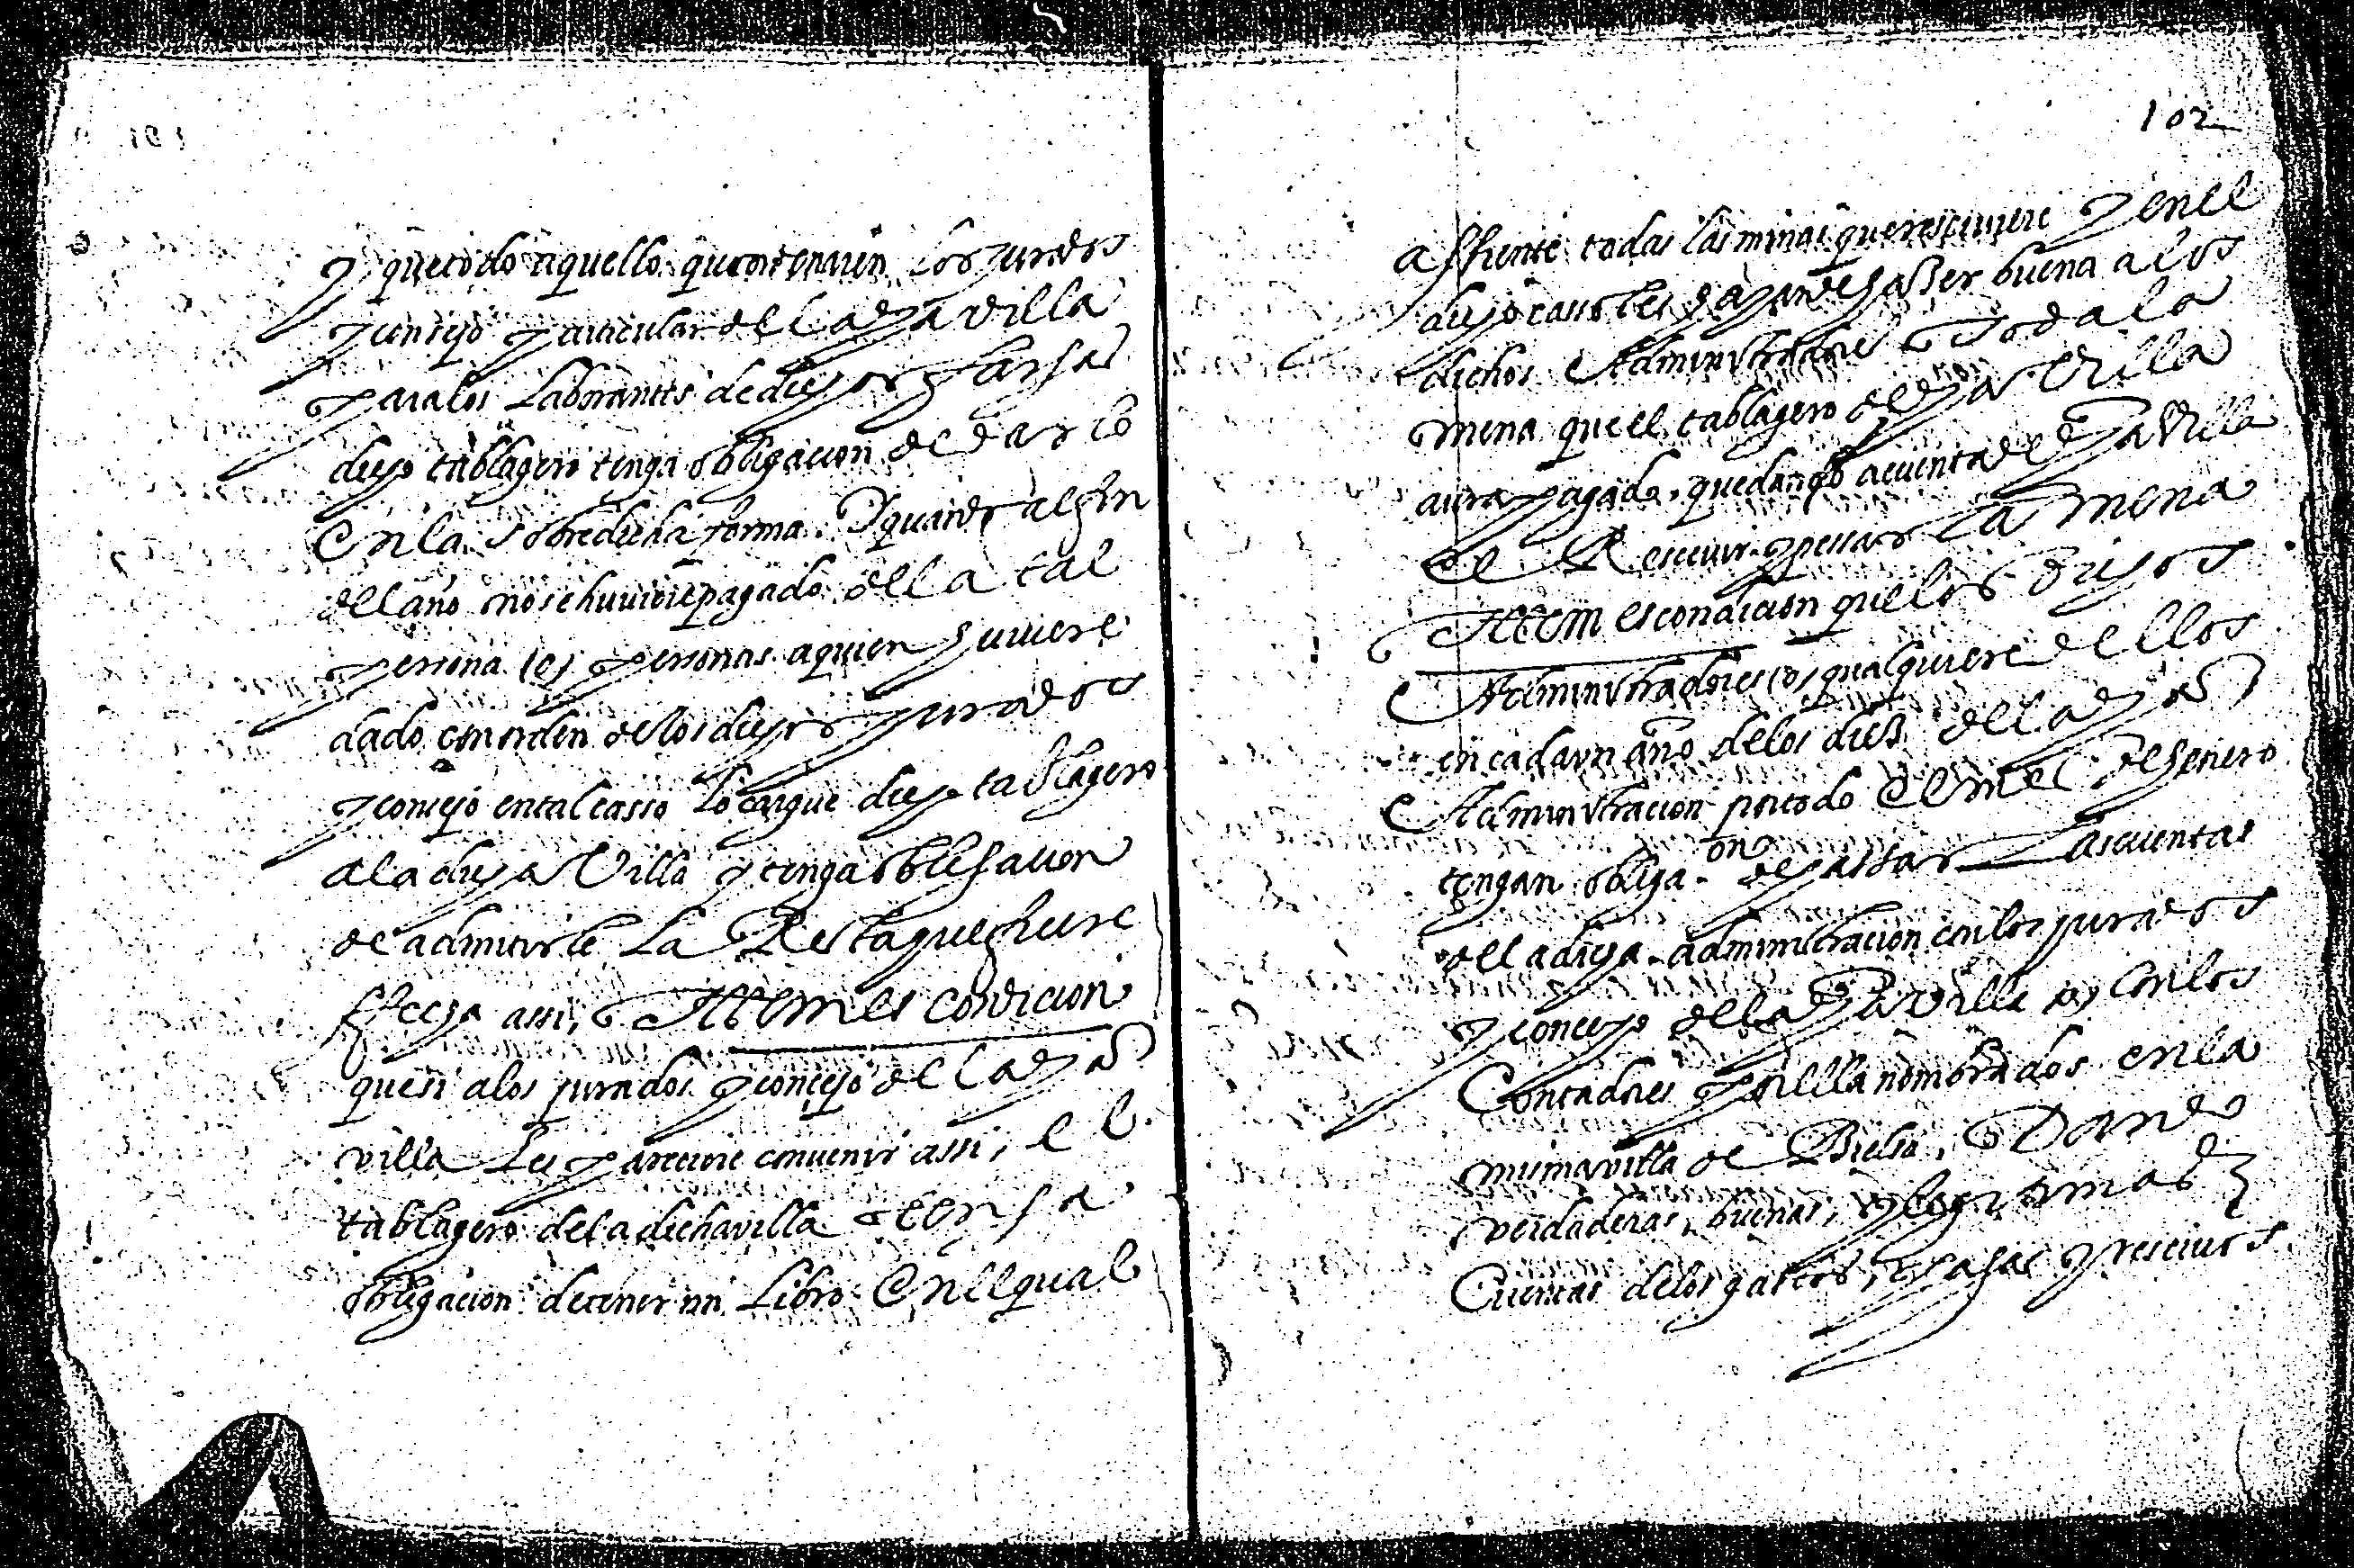 y que todo aquello que ordenaren los jurados
y consejo particular de la dha villa
para los Labrantes de dichas farjas
dicho tablagero tenga obligacion de darlo
En la sobredicha forma. Y quando al fin
del año no se huuiere pagado de la tal
persona (o) personas a quien huuiere
dado con orden de los dichos jurados
y consejo en tal casso lo cargue dicho tablagero
a la dicha Villa y tenga obligacion
de admitirle La Resta que huuiere
hecho assi, Ittem es condicion
que si a los jurados y consejo de la dha
villa Les pareciere conuenir assi, el
tablagero de la dicha villa tenga
obligacion de tener un Libro En el qual
102
assiente todas las minas que resciuiere y en el
dicho casso les haya de hasser buena a los
dichos Administradores Toda la
mena que el tablagero de dha Villa
aura pagado, quedando a cuenta de dha Villa
el Resceuir y pessar La mena
Ittem es condicion que los dichos
Administradores (o) qualquiere de ellos
en cada un año de los diez de la dha
Administracion por todo el mes de Henero
tengan obliga.on de passar Las cuentas
de la dicha administracion con los jurados
y concejo de la dha villa (o) Con los
Contadores por ella nombrados en la
misma villa de Bielsa, Dando
verdaderas, buenas, y legitimas
Cuentas de los gastos, pagas y resciuos